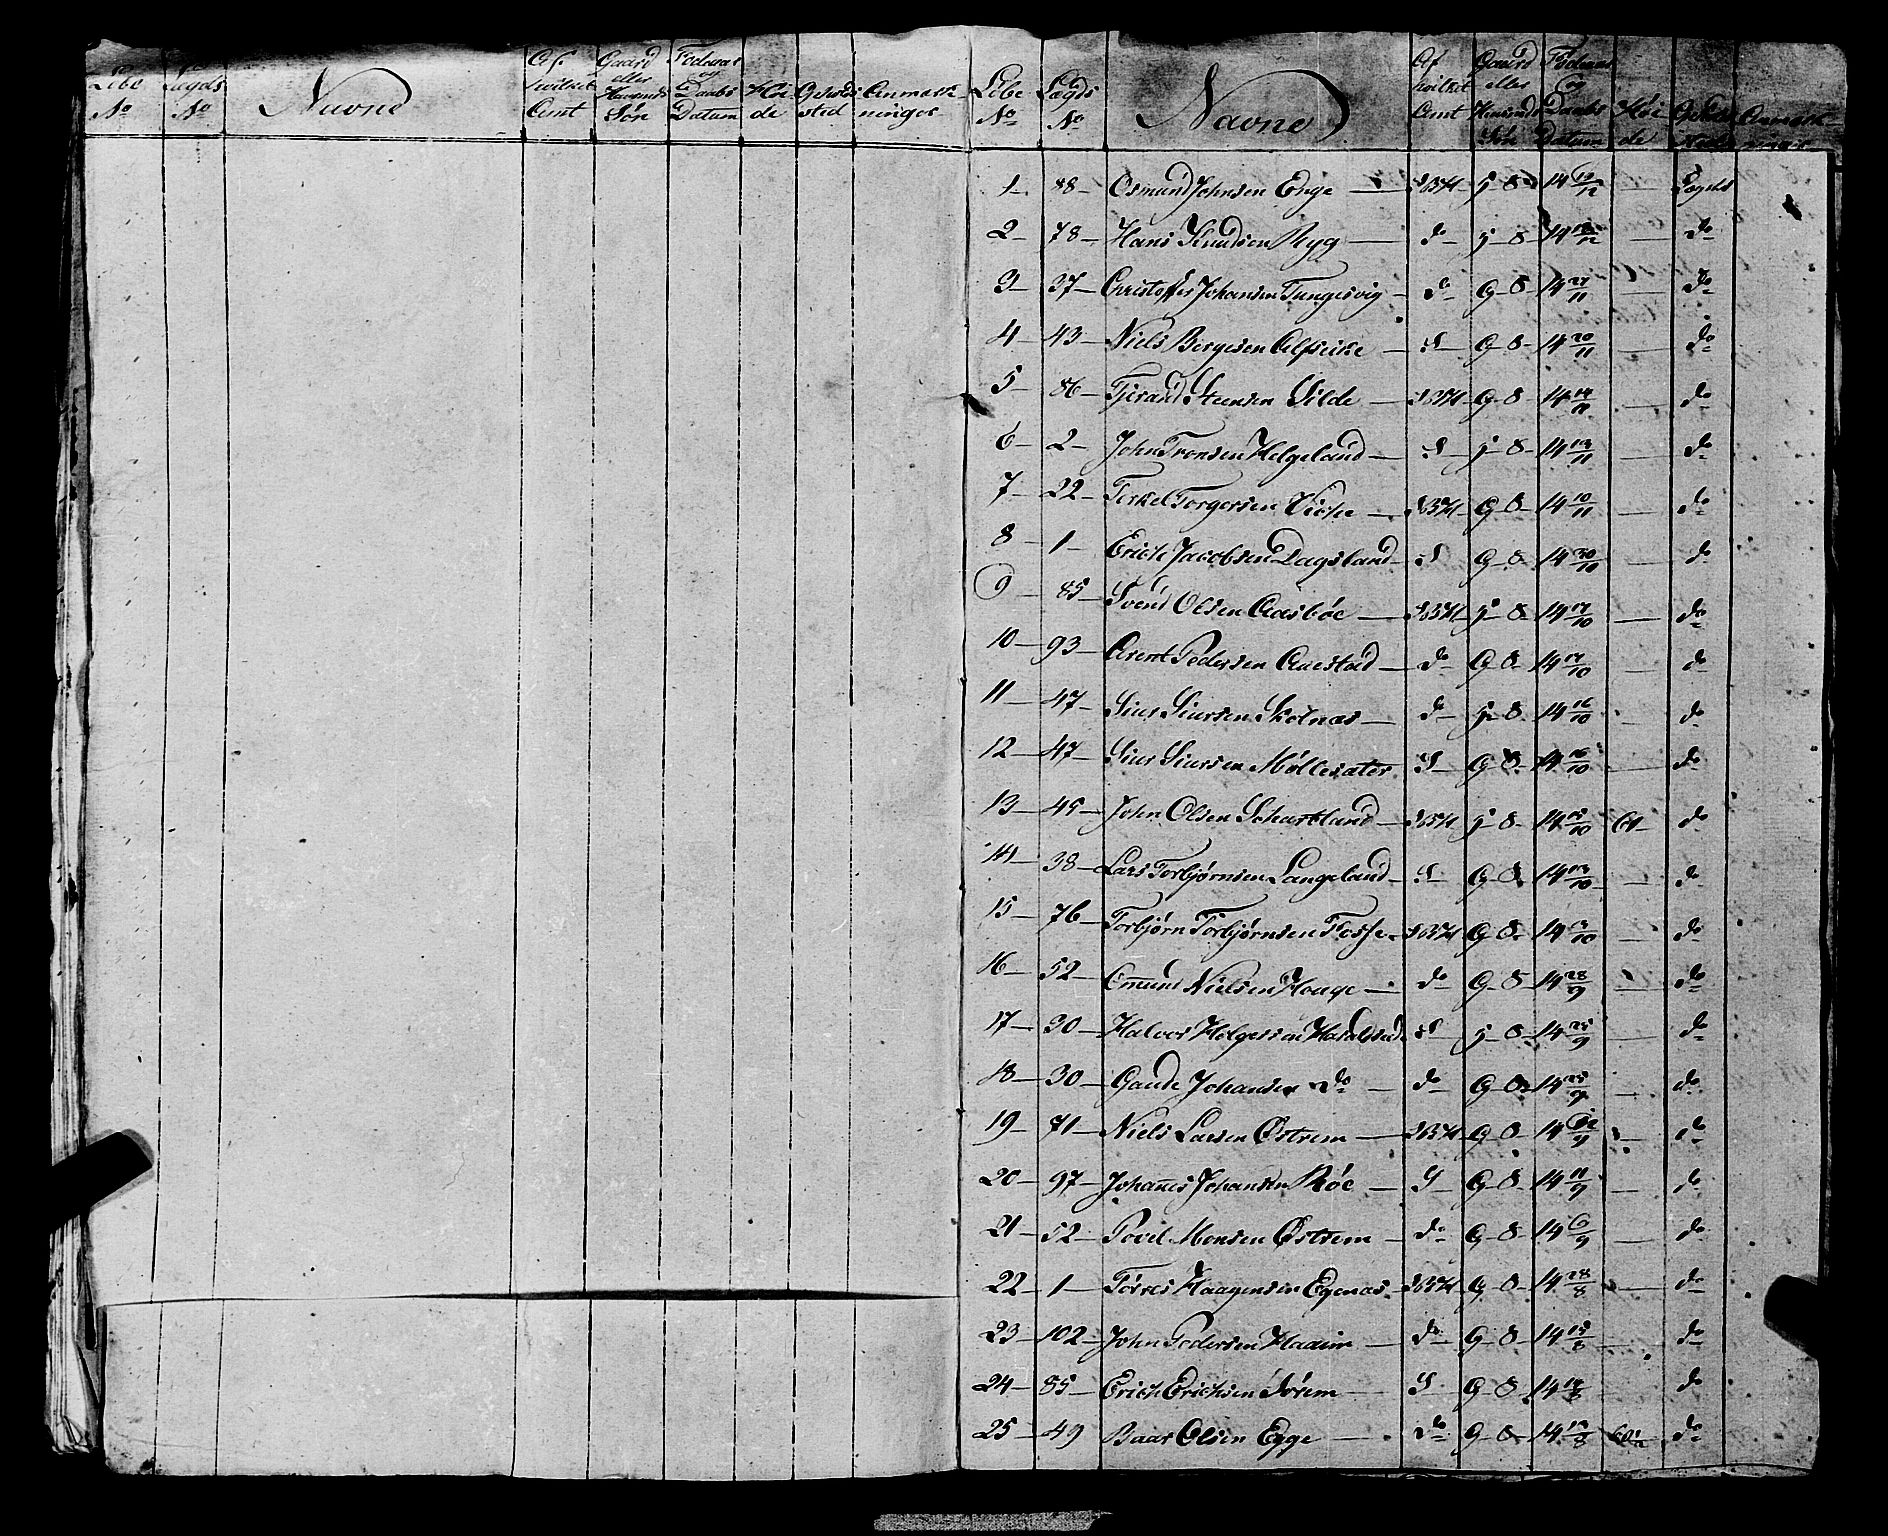 Løbe No Lægds No Navne Af hvilket Amt Gaard eller Huusmds Søn Fødenes og Daabs Datum Høide Opholds sted Anmærkninger
Løbe No Lægds No Navne Af hvilket Amt Gaard eller Huusmds Søn Fødenes og Daabs Datum Høide Anmærk
1 88 Osmund Johnsen Enge 14 12 Lægdet
2 78 Hans Knudsen Ryg do 14 12 do
3 37 Christoffer Johansen Tungesvig do G S 14 11 do
4 43 Niels Bergesen S G S 14 20/11 do
5 86 Tjerand Steensen Silde G S 14 14/11 do
6 2 John Tronsen Helgeland S S 14 13/11 do
7 22 Terkel Torgersen G S 14 10/11 do
8 1 Erich Jacobsen Dagsland S G S 14 30/10 do
9 85 Svend Olsen Aasbøe S 14 17/10 do
10 93 Arent Pedersen Auestad do G S 14 17/10 do
11 47 Siur Siursen Skolnæs do S 14 16/10 do
12 47 Siur Siursen Møllesæter S G S 14 16/10 do
13 45 John Olsen S 14 15/10 61 do
14 38 Lars Torbjørnsen Langeland S G S 14 13/10 do
15 76 Torbjørn Torbjørnsen Fosse G S 14 10 do
16 52 Omund Nielsen Houge do G S 14 28/9 do
17 30 Halvor Helgesen S S 14 25/9 do
18 30 Gaute Johansen do do G S 14 25/9 do
19 71 Niels Larsen Østrem G S 14 9 do
20 97 Johannes Johansen Røe S G S 14 11/9 do
21 52 Povel Monsen Østrem do G S 14 6/9 do
22 1 Tørres Haagensen Egenæs G S 14 28/8 do
23 102 John Pedersen Haaim do G S 14 15/8 do
24 85 Erich Erichsen Sørem S G S 14 14/8 do
25 49 Baar Olsen Egge do G S 14 8 do